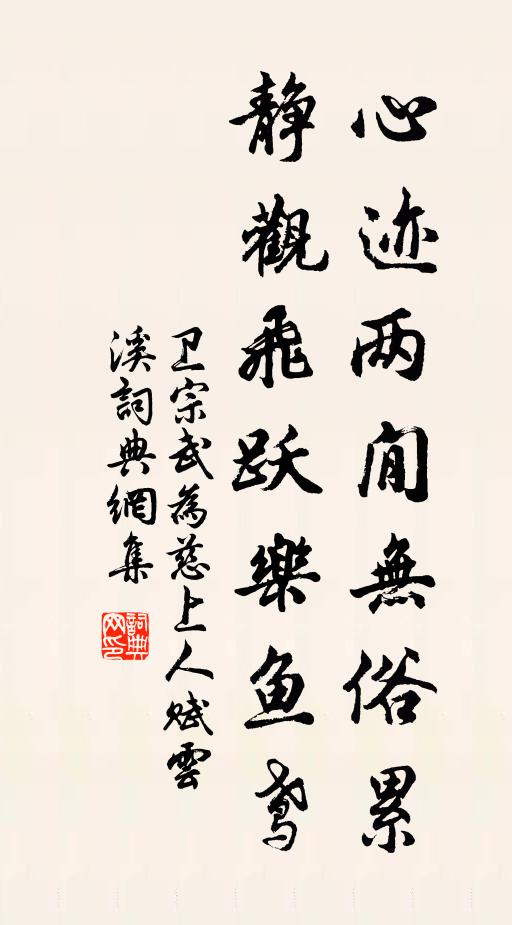 心迹两閒無俗累
静觀飛跃樂鱼鸢
卫宗武為慈上人赋雲
溪詞典網集
詞典网印